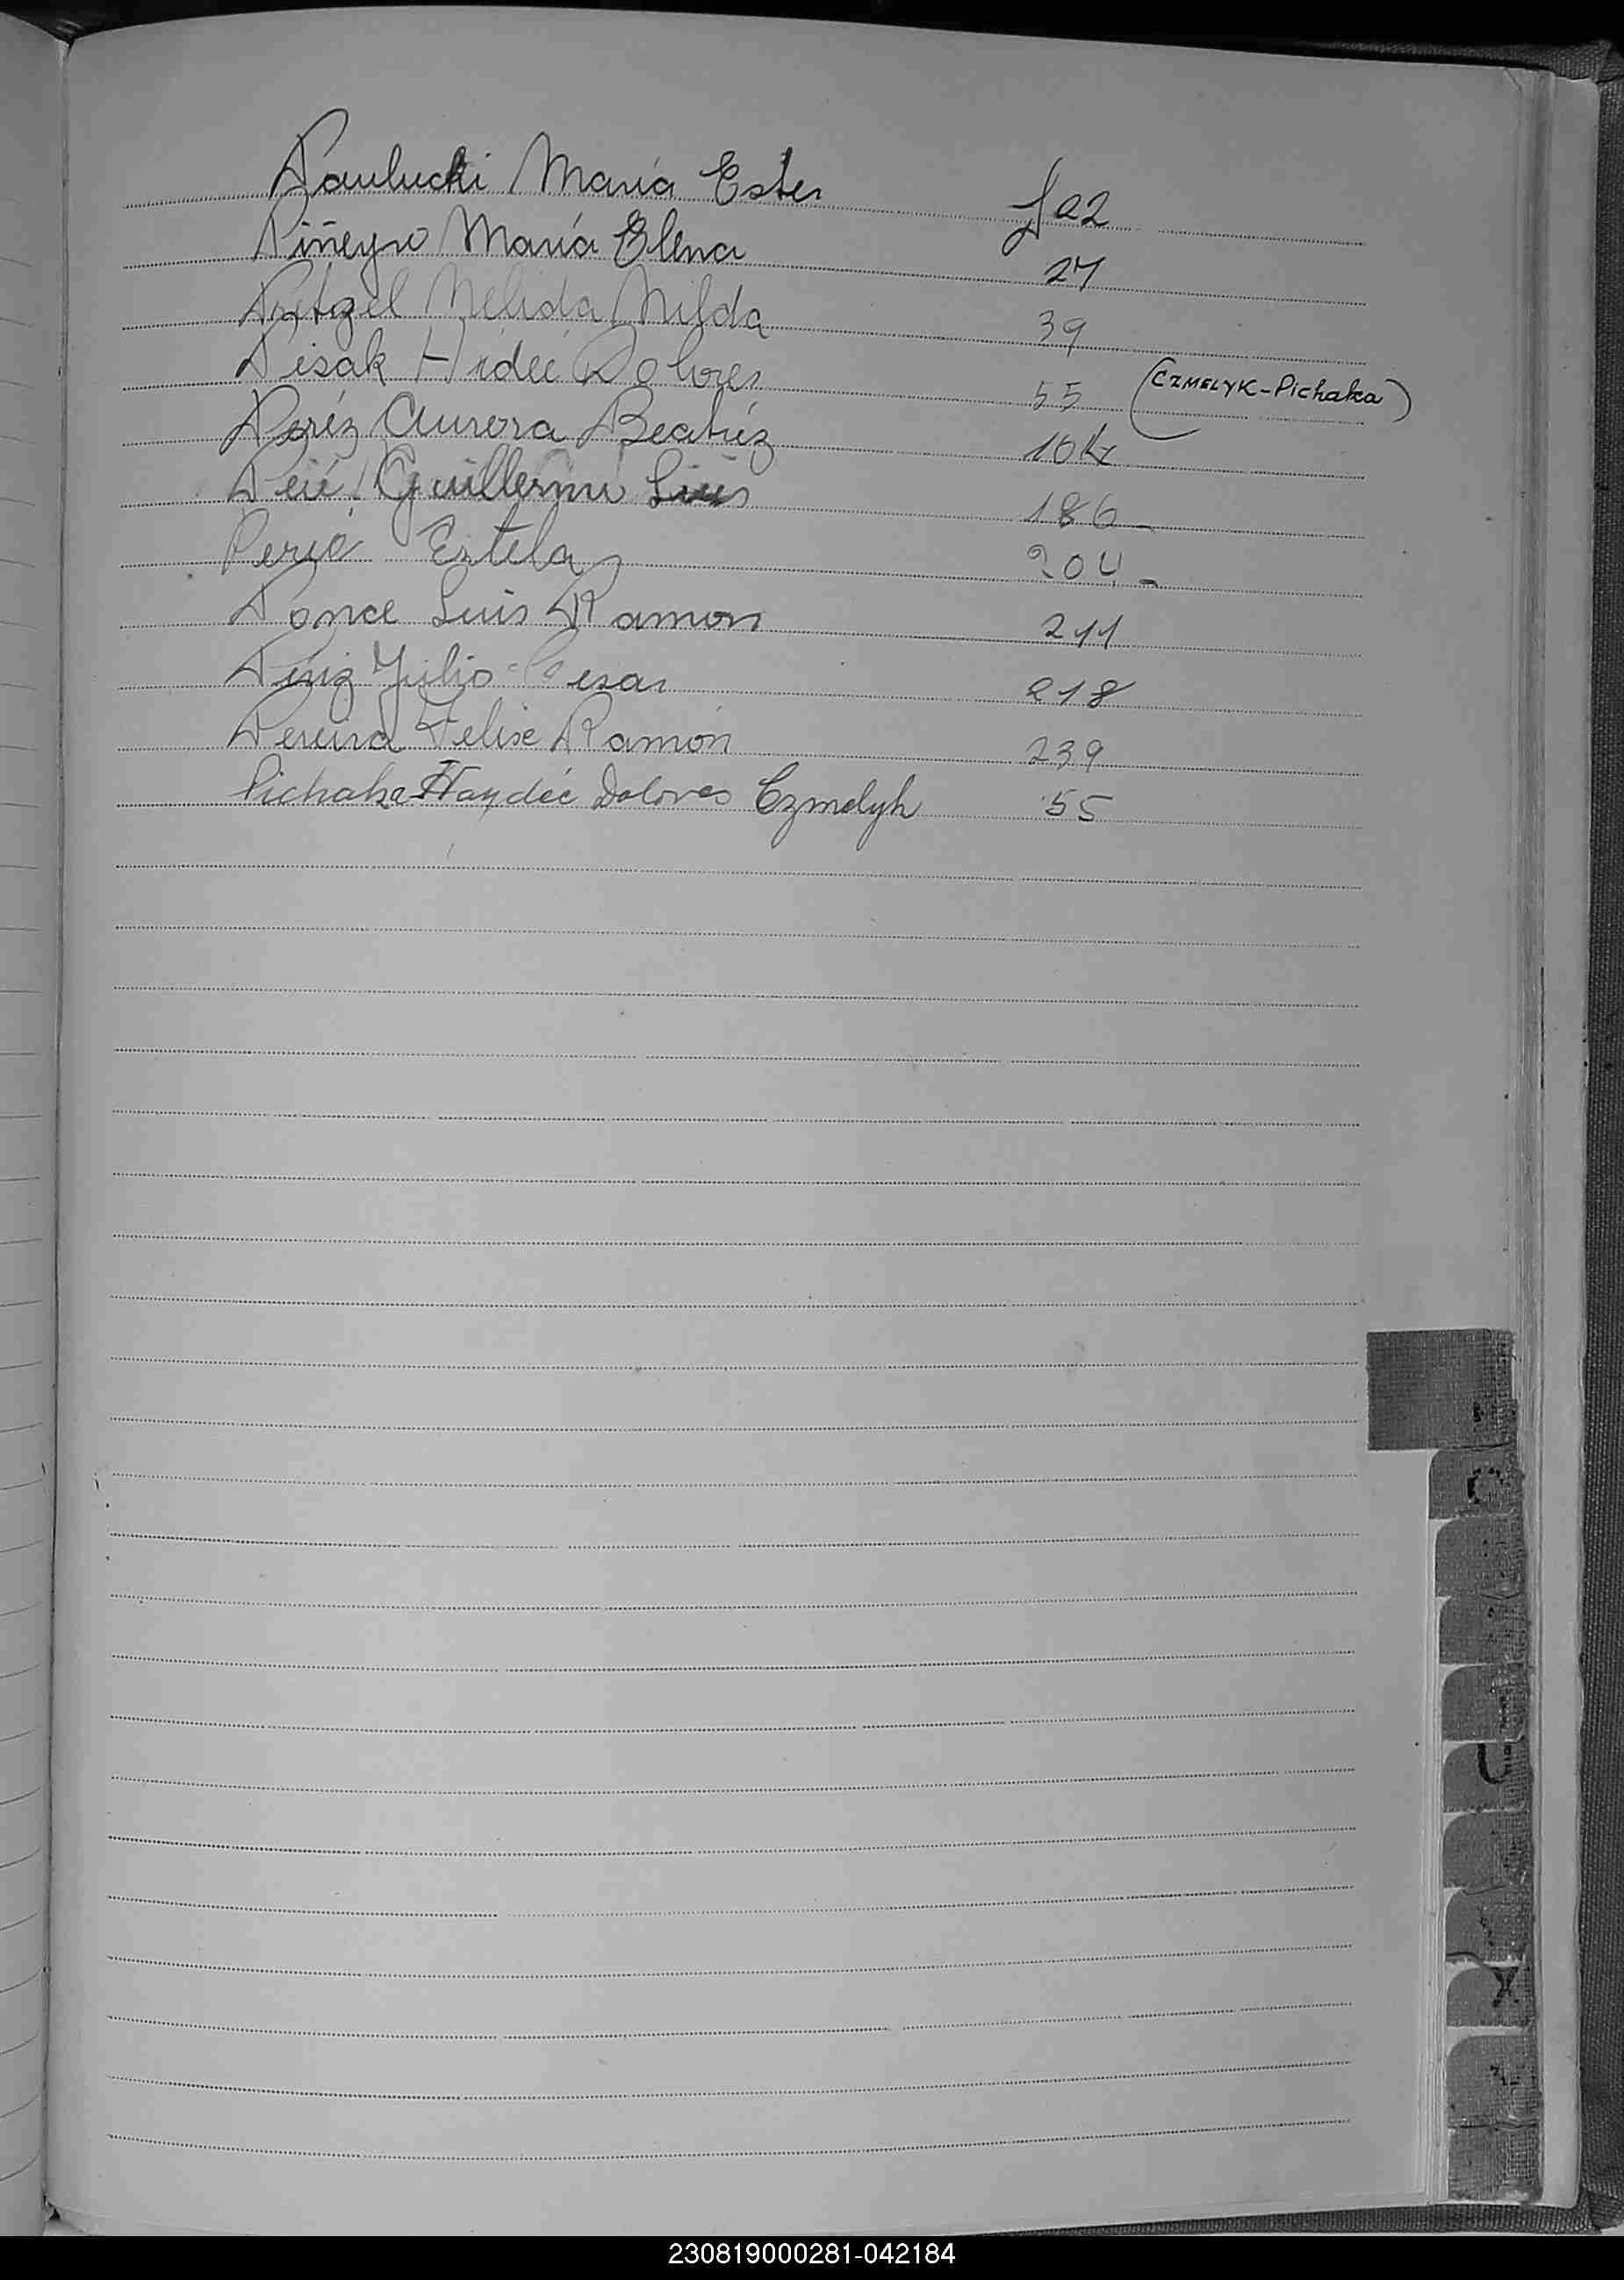 Paulucki María Ester f 22
Piñeyro María Elena 27
Nélida Nilda 39
Pisak Hideé Dolores 55 (CZMELYK-Pichaka)
Peréz Aurora Beatríz
Guillermo Luis 186-
Estela 204-
Ponce Luis Ramon 211
Julio Cesar 218
Pereira Felix Ramón 239
Pichaka Haydeé Dolores Czmelyk 55
X
230819000281-042184